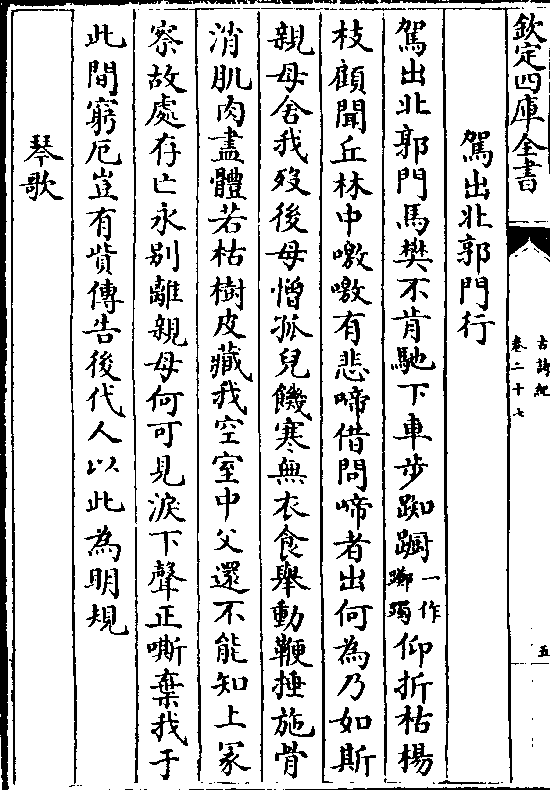 欽定四庫全書
古詩紀
卷二十七
五
駕出北郭門行
駕出北郭門馬樊不肯馳下車步踟躕一作躑躅仰折枯楊
枝顧聞丘林中噭噭有悲啼借問啼者出何為乃如斯
親母舍我歿後母憎孤兒饑寒無衣食舉動鞭捶施骨
消肌肉盡體若枯樹皮藏我空室中父還不能知上冢
察故處存亡永别離親母何可見淚下聲正嘶棄我于
此間窮厄豈有貲傳告後代人以此為明規
琴歌